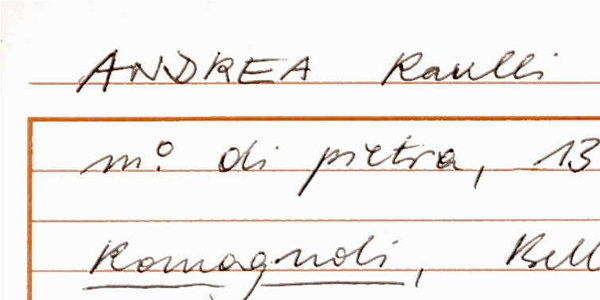 ANDREA Raulli
m.º di pietra, 13
Romagnoli, Bell